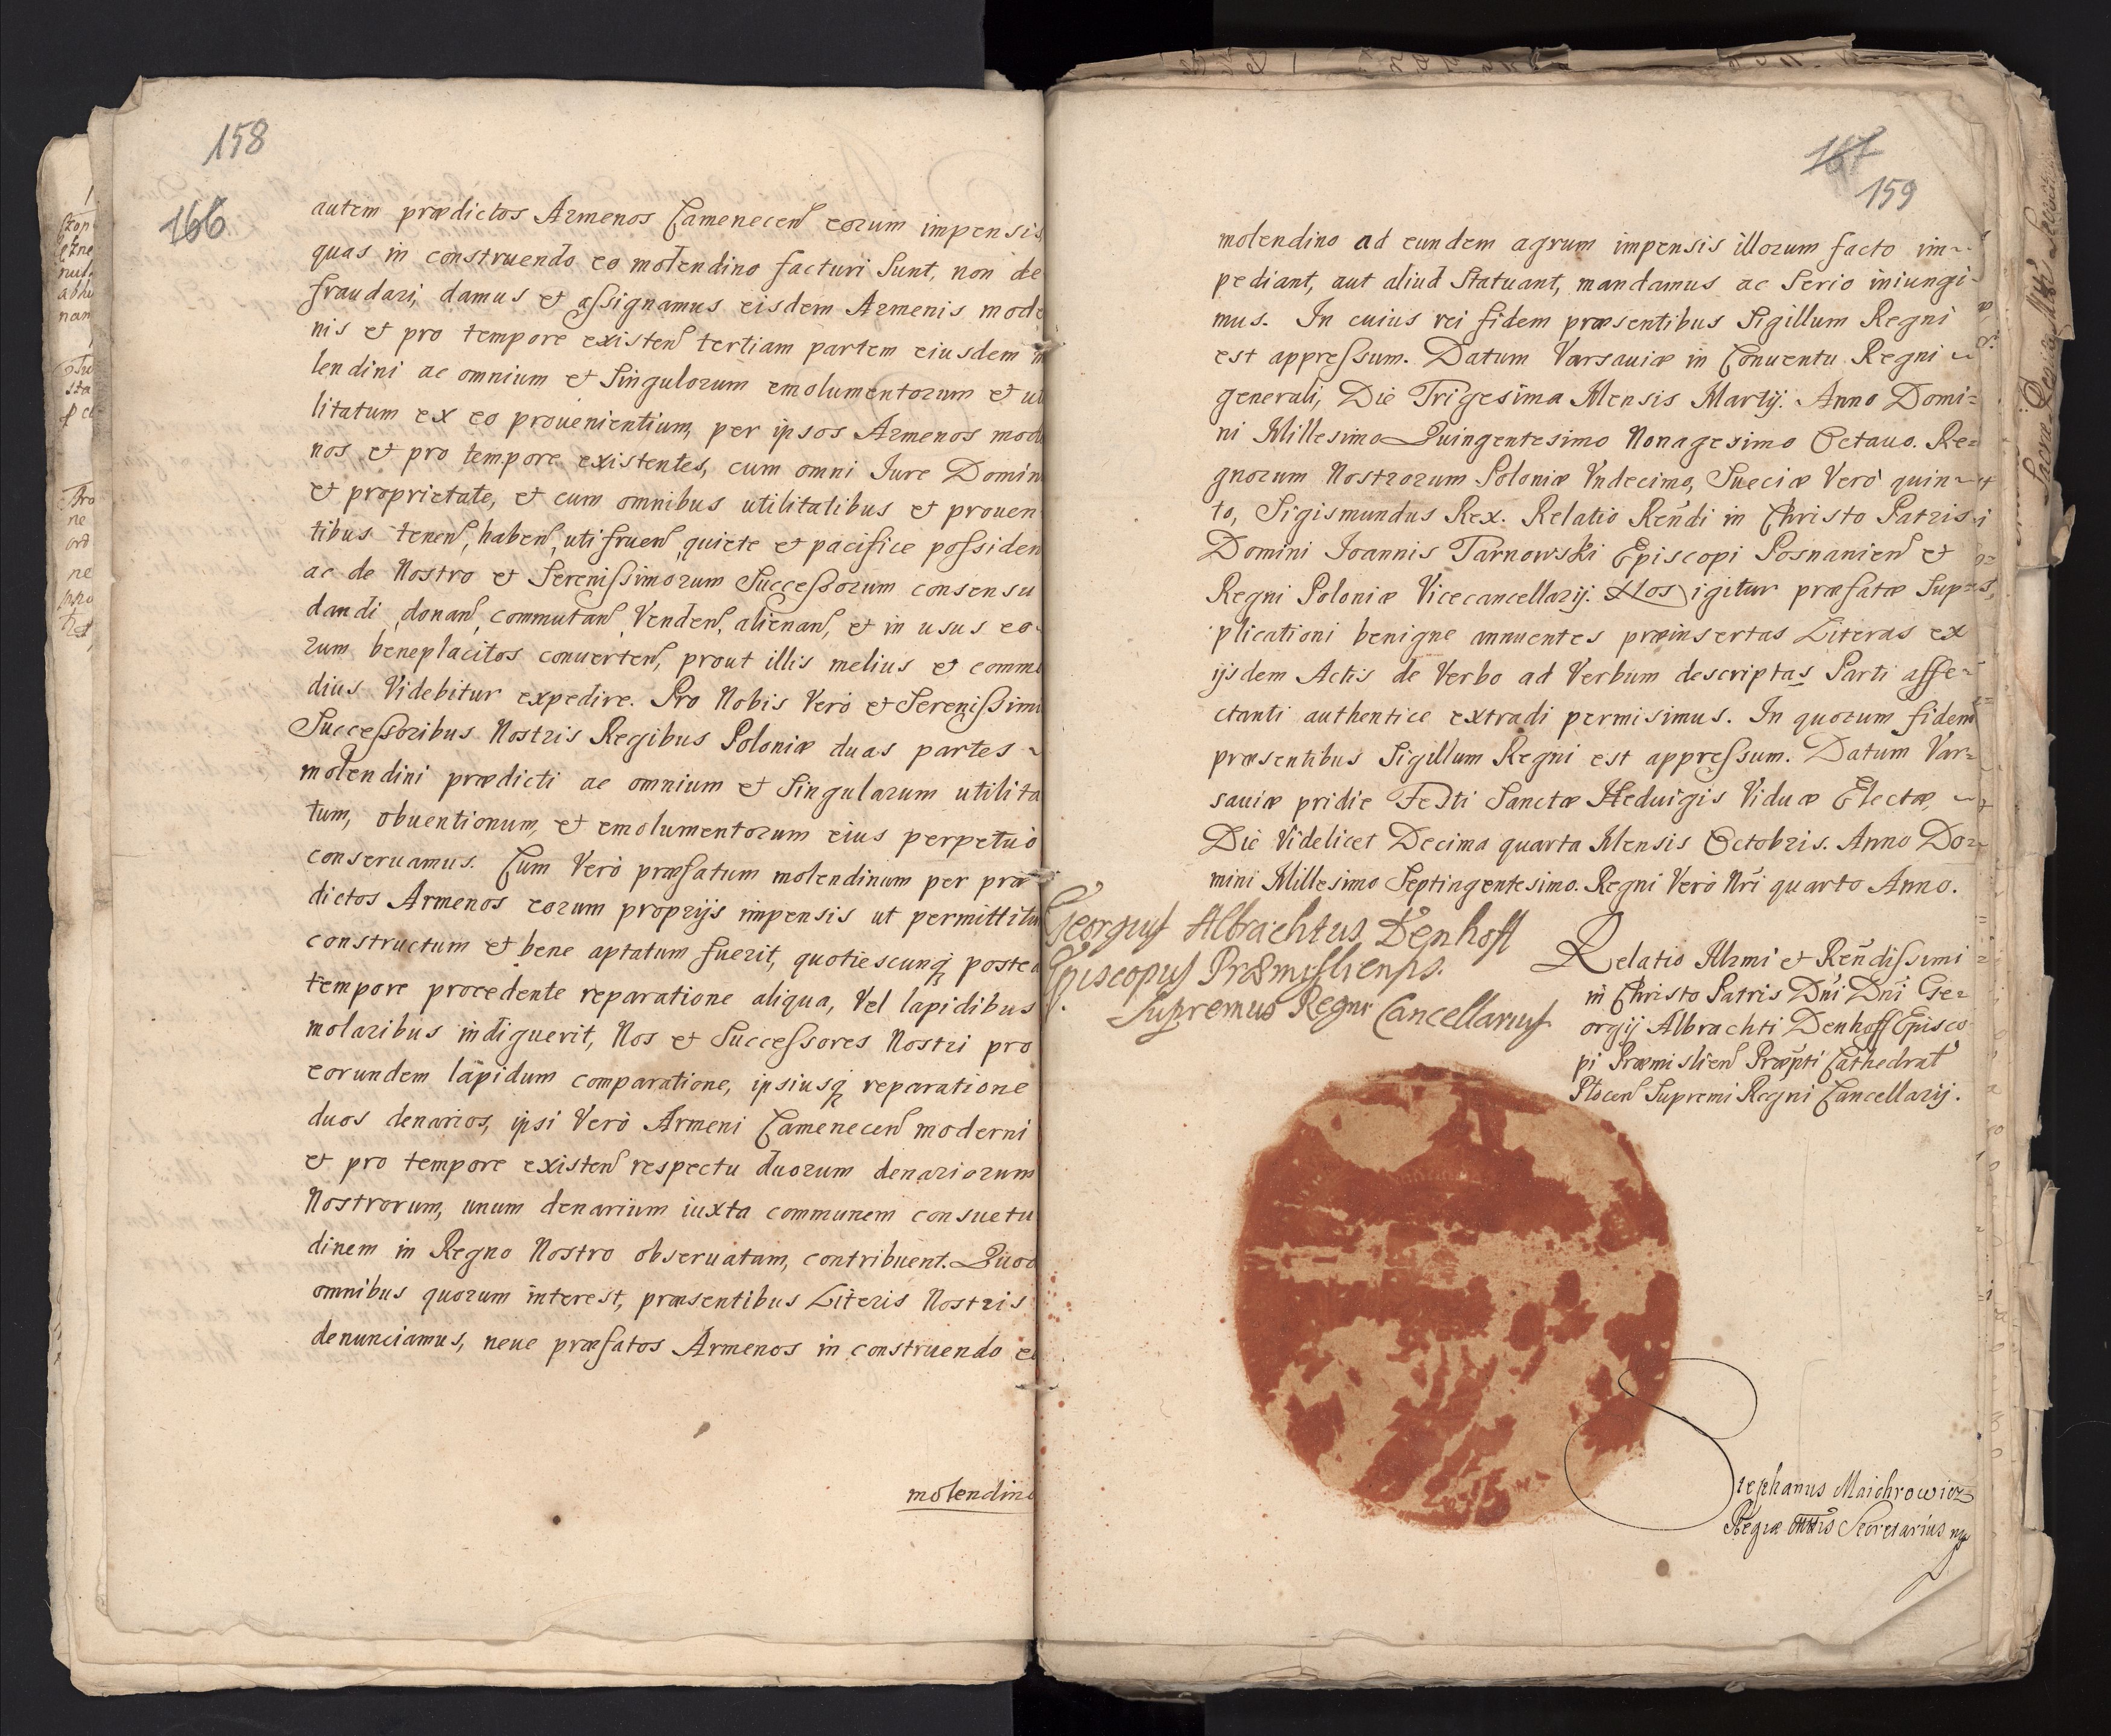 158
166
autem prædictos Armenos Camenecen eorum impensis
quas in construendo eo molendino facturi Sunt, non de
fraudari, damus et assignamus eisdem Armenis mode
nis et pro tempore existen tertiam partem eiusdem m
lendini ac omnium et Singulorum emolumentorum et ut
litatum ex eo prouenientium, per ipsos Armenos mode
nos et pro tempore existentes, cum omni Iure Domin
et proprietate, et cum omnibus utilitatibus et prouen
tibus tenen, haben, utifruen, quiete et pacifice possiden
ac de Nostro et Serenissimorum Successorum consensu
dandi, donan, commutan, Venden, alienan, et in usus eo
rum beneplacitos conuerten, prout illis melius et commo
dius Videbitur expedire. Pro Nobis Verò et Serenissimi
Successoribus Nostris Regibus Poloniæ duas partes ~
molendini prædicti ac omnium et Singularum utilita
tum, obuentionum, et emolumentorum eius perpetuò
conseruamus. Cum Verò præfatum molendinum per præ
dictos Armenos eorum proprijs impensis ut permittitur
constructum et bene aptatum fuerit, quotiescunq postea
tempore procedente reparatione aliqua, Vel lapidibus
molaribus indiguerit, Nos et Successores Nostri pro
eorundem lapidum comparatione, ipsiusq reparatione
duos denarios, ipsi Verò Armeni Camenecen moderni
et pro tempore existen respectu duorum denariorum
Nostrorum, unum denarium iuxta communem consuetu
dinem in Regno Nostro obseruatam, contribuent. Quod
omnibus quorum interest, præsentibus Literis Nostris
denunciamus, neue præfatos Armenos in construendo eo
molendino
167
159
molendino ad eundem agrum impensis illorum facto im~
pediant, aut aliud Statuant, mandamus ac Serio iniungi-
mus. In cuius rei fidem præsentibus Sigillum Regni
est appressum. Datum Varsauiæ in Conuentu Regni ~
generali, Die Trigesima Mensis Martij. Anno Domi=
ni Millesimo Quingentesimo Nonagesimo Octauo. Re=
gnorum Nostrorum Poloniæ Vndecimo, Sueciæ Verò quin~
to, Sigismundus Rex. Relatio Rendi in Christo Patris
Domini Ioannis Tarnowski Episcopi Posnanien et
Regni Poloniæ Vicecancellarij. Nos igitur præfatæ Sup=
plicationi benigne annuentes præinsertas Literas ex
ijsdem Actis de Verbo ad Verbum descriptas Parti affe=
ctanti authentice extradi permisimus. In quorum fidem
præsentibus Sigillum Regni est appressum. Datum Var=
sauiæ pridie Festi Sanctæ Heduigis Viduæ Electæ, ~
Die Videlicet Decima quarta Mensis Octobris. Anno Do=
mini Millesimo Septingentesimo. Regni Verò Nri quarto Anno.
Georgius Albrachtus Denhoff
Episcopus Præmysliensis.
Supremus Regni Cancellarius
Relatio Illmi et Rendissimi
in Christo Patris Dni Dni Ge=
orgij Albrachti Denhoff Episco
pi Præmislien Præpti Cathedral
Plocen Supremi Regni Cancellarij.
Stephanus Maichrowicz
Regiæ Mttis Secretarius mp